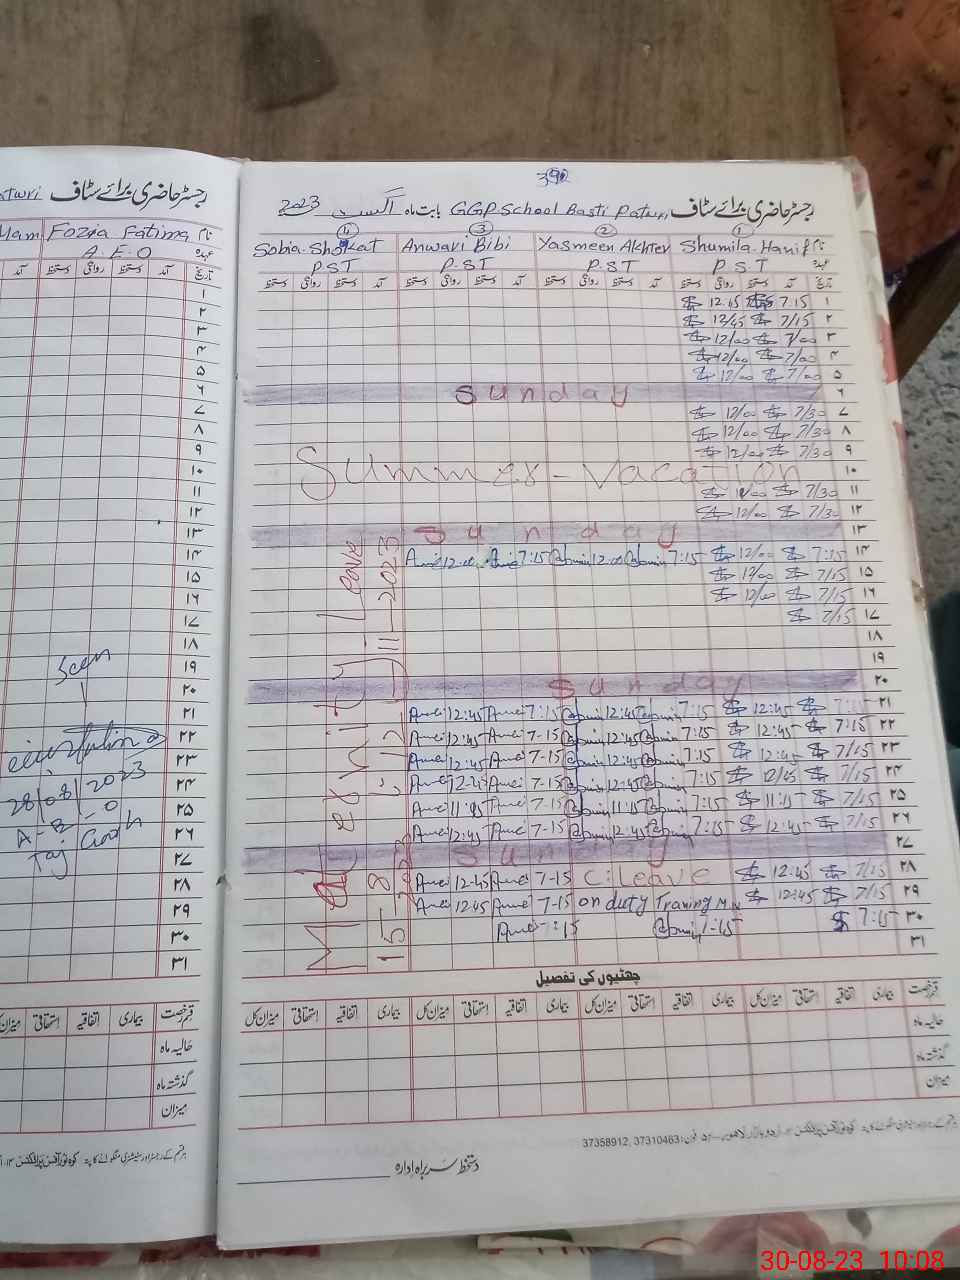 392
رجسٹر حاضری برائے سٹاف GGP School Basti Patwri بابت ماہ اگست 2023
نام Shumila Hanif ① Yasmeen Akhter ② Anwari Bibi ③ Sobia Shokat ④
عہدہ P.S.T P.S.T P.S.T P.S.T
تاریخ آمد دستخط روانگی دستخط آمد دستخط روانگی دستخط آمد دستخط روانگی دستخط آمد دستخط روانگی دستخط
۱ 7:15 12:45
۲ 7/15 12/45
۳ 7/00 12/00
۴ 7/00 12/00
۵ 7/00 12/00
۶ Sunday
۷ 7/30 12/00
۸ 7/30 12/00
۹ 7/30 12/00
۱۰ Summer-Vacation
۱۱ 7/30 12/00
۱۲ 7/30 12/00
۱۳ Sunday
۱۴ 7:15 12/00 7:15 12:00 7:15 12:00
۱۵ 7/15 12/00
۱۶ 7/15 12/00
۱۷ 7/15
۱۸
۱۹
۲۰ Sunday
۲۱ 7:15 12:45 7:15 12:45 7:15 12:45
۲۲ 7:15 12:45 7:15 12:45 7-15 12:45
۲۳ 7/15 12:45 7:15 12:45 7-15 12:45
۲۴ 7/15 12/45 7:15 12:45 7-15 12-45
۲۵ 7/15 11:15 7:15 11:15 7-15 11:45
۲۶ 7/15 12:45 7:15 12:45 7-15 12:45
۲۷ Sunday
۲۸ 7/15 12:45 C:Leave 7-15 12-45
۲۹ 7/15 12:45 on duty Training 7-15 12.45
۳۰ 7:15 7:15 7:15
۳۱
Maternity Leave
چھٹیوں کی تفصیل
قسم رخصت بیماری اتفاقیہ استحقاقی میزان کل بیماری اتفاقیہ استحقاقی میزان کل بیماری اتفاقیہ استحقاقی میزان کل بیماری اتفاقیہ استحقاقی میزان کل
حالیہ ماہ
گذشتہ ماہ
میزان
37358912, 37310463
دستخط سربراہ ادارہ
رجسٹر حاضری برائے سٹاف
نام Fozia Fatima
عہدہ A.E.O
تاریخ آمد دستخط روانگی دستخط آمد
۱
۲
۳
۴
۵
۶
۷
۸
۹
۱۰
۱۱
۱۲
۱۳
۱۴
۱۵
۱۶
۱۷
۱۸
۱۹
۲۰
۲۱
۲۲
۲۳
۲۴
۲۵
۲۶
۲۷
۲۸
۲۹
۳۰
۳۱
Seen
28/08/2023
A-E-O
Taj Garh
قسم رخصت بیماری اتفاقیہ استحقاقی میزان کل
حالیہ ماہ
گذشتہ ماہ
میزان
30-08-23 10:08